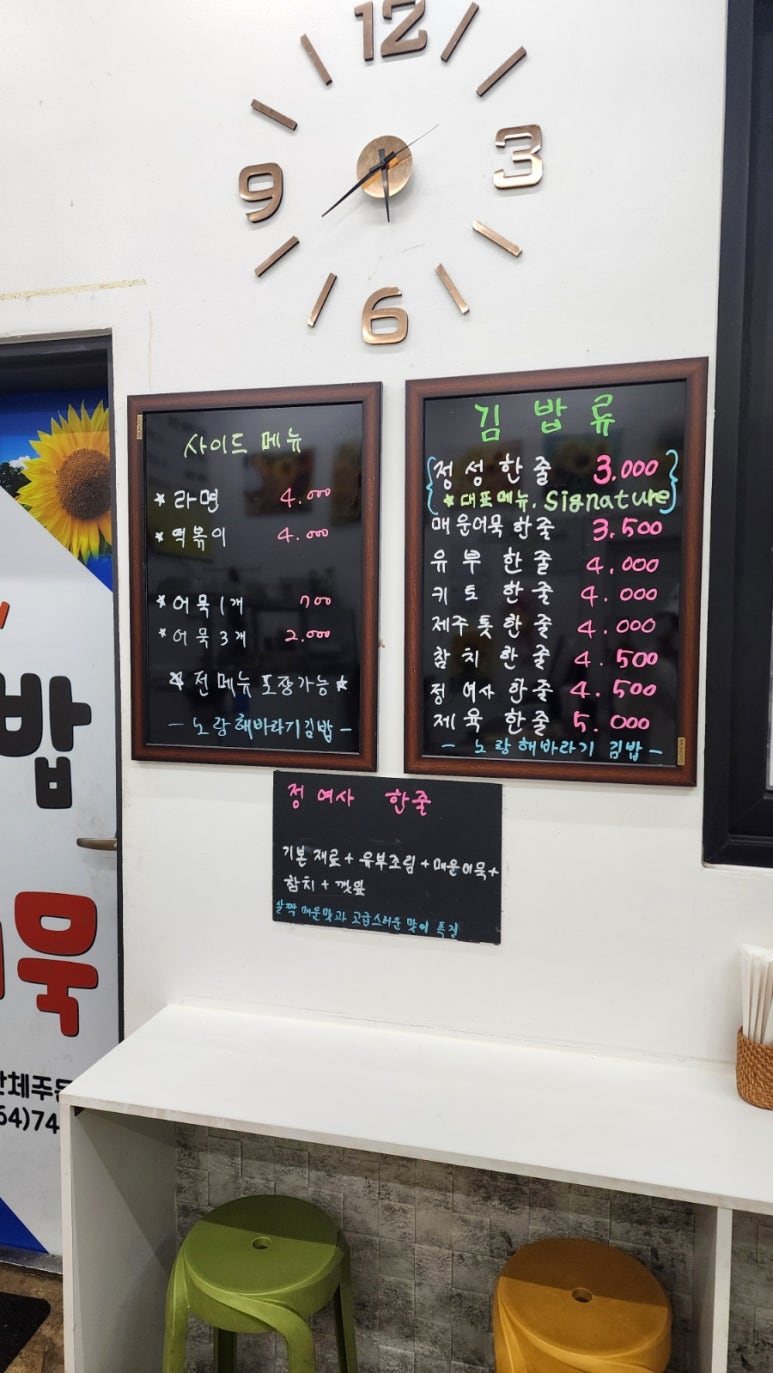 12
3
9
6
사이드 메뉴
* 라면 4.000
* 떡볶이 4.000
* 어묵 1개 700
* 어묵 3개 2.000
* 전 메뉴 포장가능 *
- 노랑해바라기김밥 -
김 밥 류
정성한줄 3.000
* 대표메뉴. Signature
매운어묵 한줄 3.500
유부 한줄 4.000
키토 한줄 4.000
제주톳한줄 4.000
참치 한줄 4.500
정여사 한줄 4.500
제육 한줄 5.000
- 노랑해바라기 김밥 -
정여사 한줄
기본재료+유부조림+매운어묵+
참치+깻잎
살짝 매운맛과 고급스러운 맛이 특징
밥
묵
단체주문
64)74